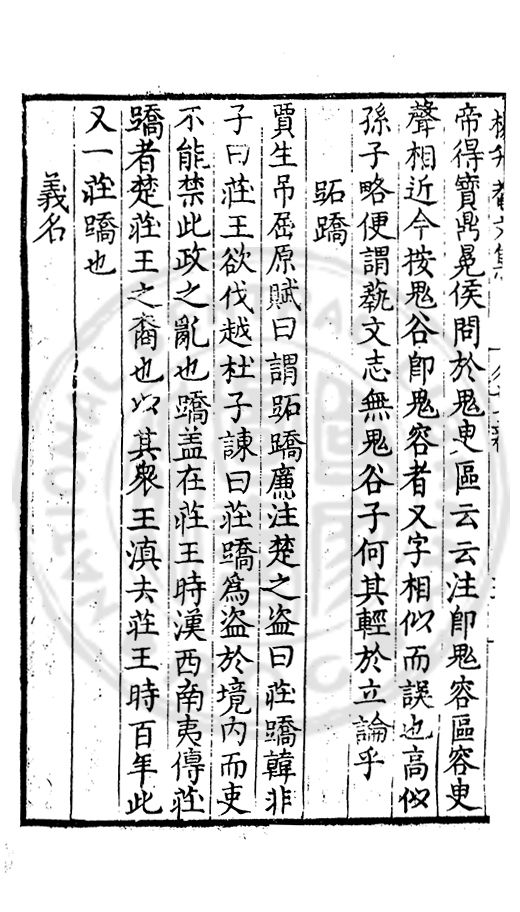 帝得寶鼎冕侯問於鬼臾區云云注即鬼容區容臾
聲相近今按鬼谷即鬼容者又字相似而誤也高似
孫子略便謂藝文志無鬼谷子何其輕於立論乎
跖蹻
賈生吊屈原賦曰謂跖蹻廉注楚之盜曰莊蹻韓非
子曰莊王欲伐越杜子諫曰莊蹻為盜於境內而吏
不能禁此政之亂也蹻蓋在莊王時漢西南夷傳莊
蹻者楚莊王之裔也以其眾王滇去莊王時百年此
又一莊蹻也
義名